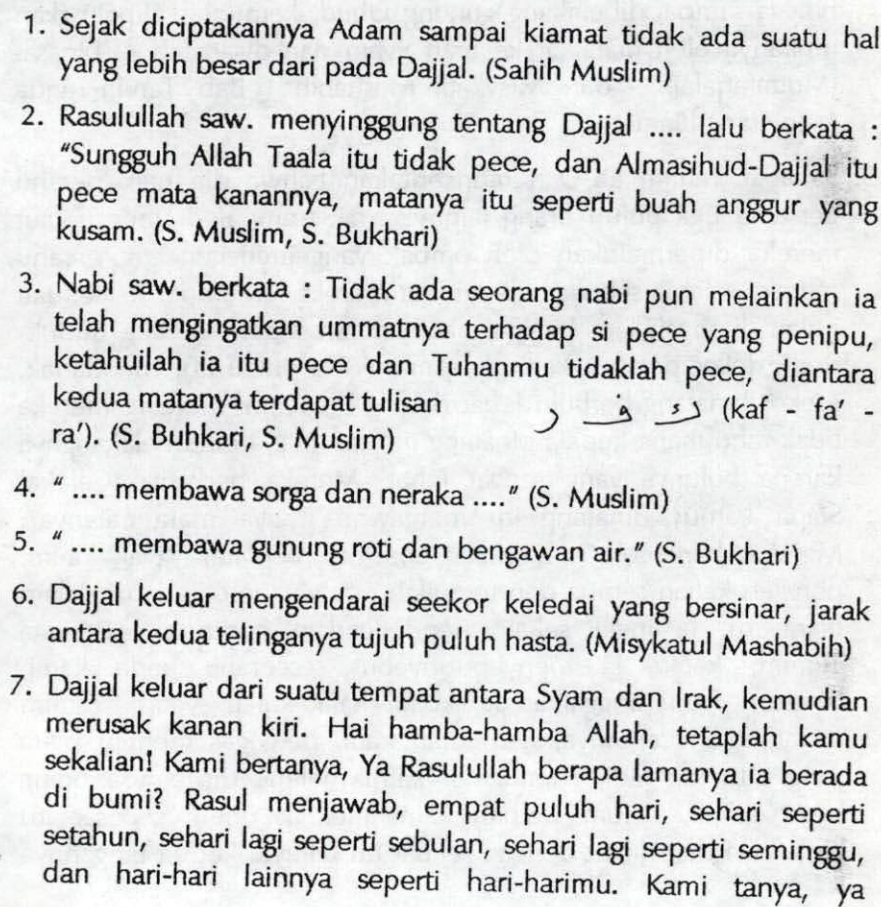 1. Sejak diciptakannya Adam sampai kiamat tidak ada suatu hal
yang lebih besar dari pada Dajjal. (Sahih Muslim)
2. Rasulullah saw. menyinggung tentang Dajjal .... lalu berkata :
"Sungguh Allah Taala itu tidak pece, dan Almasihud-Dajjal itu
pece mata kanannya, matanya itu seperti buah anggur yang
kusam. (S. Muslim, S. Bukhari)
3. Nabi saw. berkata : Tidak ada seorang nabi pun melainkan ia
telah mengingatkan ummatnya terhadap si pece yang penipu,
ketahuilah ia itu pece dan Tuhanmu tidaklah pece, diantara
kedua matanya terdapat tulisan ك ف ر (kaf - fa' -
ra'). (S. Buhkari, S. Muslim)
4. " .... membawa sorga dan neraka ...." (S. Muslim)
5. " .... membawa gunung roti dan bengawan air." (S. Bukhari)
6. Dajjal keluar mengendarai seekor keledai yang bersinar, jarak
antara kedua telinganya tujuh puluh hasta. (Misykatul Mashabih)
7. Dajjal keluar dari suatu tempat antara Syam dan Irak, kemudian
merusak kanan kiri. Hai hamba-hamba Allah, tetaplah kamu
sekalian! Kami bertanya, Ya Rasulullah berapa lamanya ia berada
di bumi? Rasul menjawab, empat puluh hari, sehari seperti
setahun, sehari lagi seperti sebulan, sehari lagi seperti seminggu,
dan hari-hari lainnya seperti hari-harimu. Kami tanya, ya